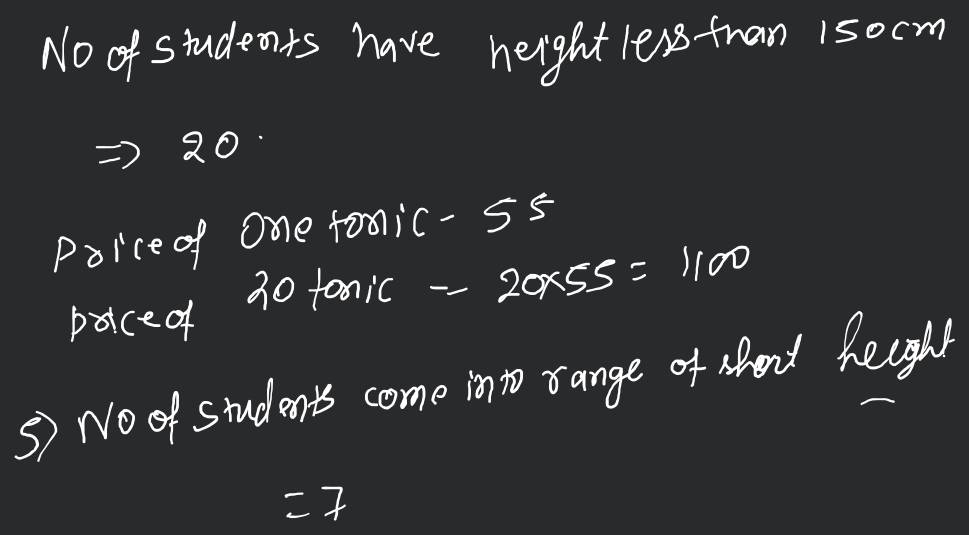 No of students have height less than 150cm
=> 20
Price of one tonic - 55
price of 20 tonic - 20x55 = 1100
5) No of students come into range of short height
= 7